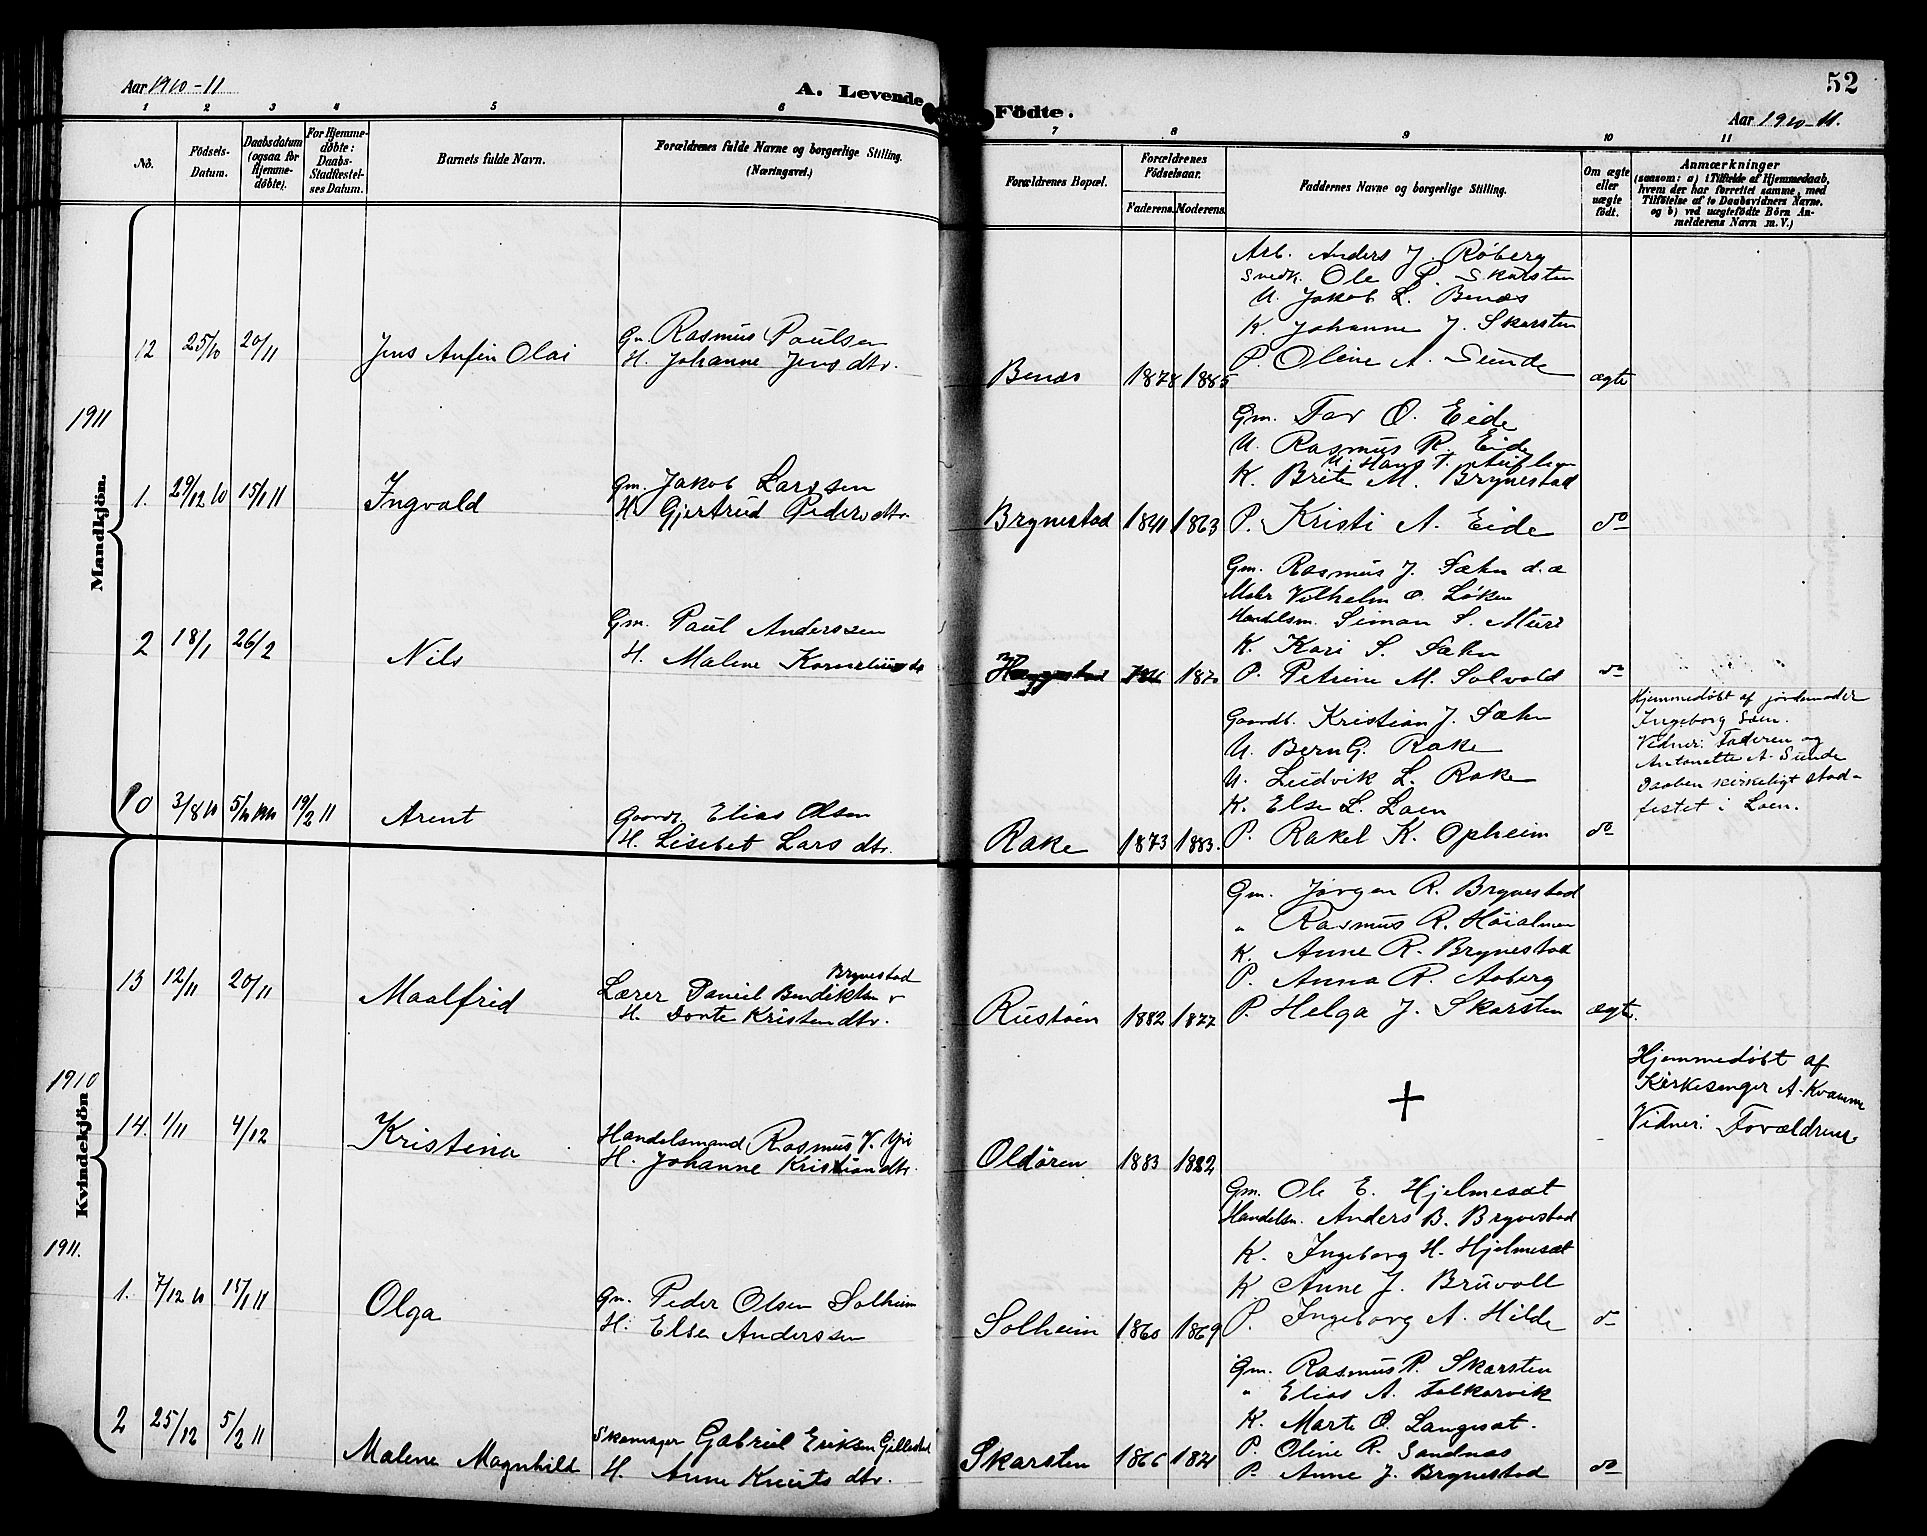 Aar 1910-11
A. Levende
1 2 3 4 5 6
No.
Fødsels-
Datum.
Daabsdatum
(ogsaa for
Hjemme-
døbte).
For Hjemme-
døbte:
Daabs-
Stadfæstel-
ses Datum.
Barnets fulde Navn.
Forældrenes fulde Navne og borgerlige Stilling.
(Næringsvei.)
Mandkjön.
12 25/10 20/11 Jens Anfin Olai
Gm. Rasmus Paulsen
H. Johanne Jensdtr.
1911
1. 29/12 10 15/1 11 Ingvald
Gm. Jakob Larssen
H. Gjertrud Pedersdtr.
2 18/1 26/2 Nils
Gm. Paul Anderssen
H. Malene Korneliusdtr
10 3/8 10 19/2 11 Arent
Gaardb. Elias Olsen
H. Lisebet Larsdtr.
Kvindekjön
13 12/11 20/11 Maalfrid
Brynestad
Lærer Daniel Bendiktsen
H. Dorte Kristendtr.
1910
14. 1/11 4/12 Kristina
Handelsmand Rasmus V. Yri
H. Johanne Kristiandtr.
1911.
1. 7/12 10 15/1 11 Olga
Gm. Peder Olsen Solheim
H. Else Anderssen
2 25/12 5/2 11 Malene Magnhild
Skomager Gabriel Eriksen Gillestad
H. Anne Knutsdtr.
52
Fødte.
Aar 1910-11.
7 8 9 10 11
Forældrenes Bopæl.
Forældrenes
Fødselsaar.
Faderens. Moderens.
Faddernes Navne og borgerlige Stilling.
Om ægte
eller
uægte
født.
Anmærkninger
(saasom: a) i Tilfælde af Hjemmedaab,
hvem der har forrettet samme, med
Tilføielse af to Daabsvidners Navne.
og b) ved uægtefødte Børn An-
melderens Navn m. V.)
Arb. Anders J. Röberg
Snedk. Ole L. Skarsten
U. Jakob L. Benæs
K. Johanne J. Skarsten
P. Oline A. Sunde
Benæs 1878 1885 ægte
Gm. Tor O. Eide
U. Rasmus R. Eide
U. Hans T.
K. Brite M. Brynestad
P. Kristi A. Eide
Brynestad 1841 1863 do
Gm. Rasmus J. Sæhn d. æ
Maler Vilhelm O. Löken
Handelsm. Simon S. Muri
K. Kari S. Sæhn
P. Petrine M. Solvold
1870 do
Gaardb. Kristian J. Sæhn
U. Bern G. Rake
U. Ludvik L. Rake
K. Else L. Loen
P. Rakel K. Opheim
Rake 1873 1883. do
Hjemmedöbt af jordemoder
Ingeborg Soen.
Vidner: Faderen og
Antonette A. Sunde
Daaben kirkeligt stad-
festet i Loen.
Gm. Jörgen R. Brynestad
" Rasmus R. Höialmen
K. Anne R. Brynestad
P. Anna R. Aaberg
P. Helga J. Skarsten
Rustöen 1882 1877 ægte.
+
Oldören 1883 1882
Hjemmedöbt af
Kirkesanger A. Kvamme
Vidner: Forældrene
Gm. Ole E. Hjelmeset
Handelsm. Anders B. Brynestad
K. Ingeborg H. Hjelmeset
K. Anne J. Bruvoll
P. Ingeborg A. Hilde
Solheim 1860 1869 do
Gm. Rasmus P. Skarsten
" Elias A. Folkorvik
K. Marte O. Langesæt.
P. Oline R. Sandnæs
P. Anne J. Brynestad
Skarsten 1866 1871 do